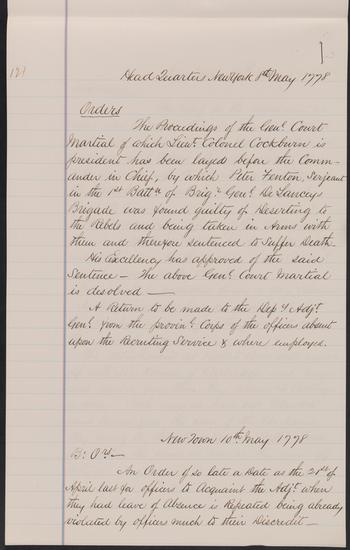 121
Head Quarters New York 8th May 1778
Orders
The Proceedings of the Genl Court
Martial of which Lieut Colonel Cockburn is
president has been layed before the Comm-
ander in Chief, by which Peter Fenton, Serjeant
in the 1st Battn of Brigr Genl De Lancey's
Brigade was found guilty of Deserting to
the Rebels and being taken in Arms with
them and therefore sentenced to Suffer Death.
His Excellency has approved of the said
Sentence — The above Genl Court Martial
is desolved —
A Return to be made to the Depy Adjt
Genl from the provinl Corps of the officers absent
upon the Recruiting Service & where employed.
New Town 10th May 1778
B: Ors —
An Order of so late a Date as the 21st of
April last for officers to Acquaint the Adjt when
they had leave of Absence is Repeated being already
violated by officers much to their Discredit —